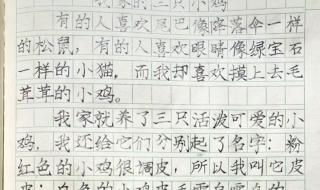 我家的三只小鸡
有的人喜欢尾巴像降落伞一样
的松鼠，有的人喜欢眼睛像绿宝石
一样的小猫，而我却喜欢摸上去毛
茸茸的小鸡。
我家就养了三只活波可爱的小
鸡，我还给它们分别起了名字：粉
红色的小鸡很调皮，所以我叫它皮
皮；白色的小鸡皮毛雪白雪白的